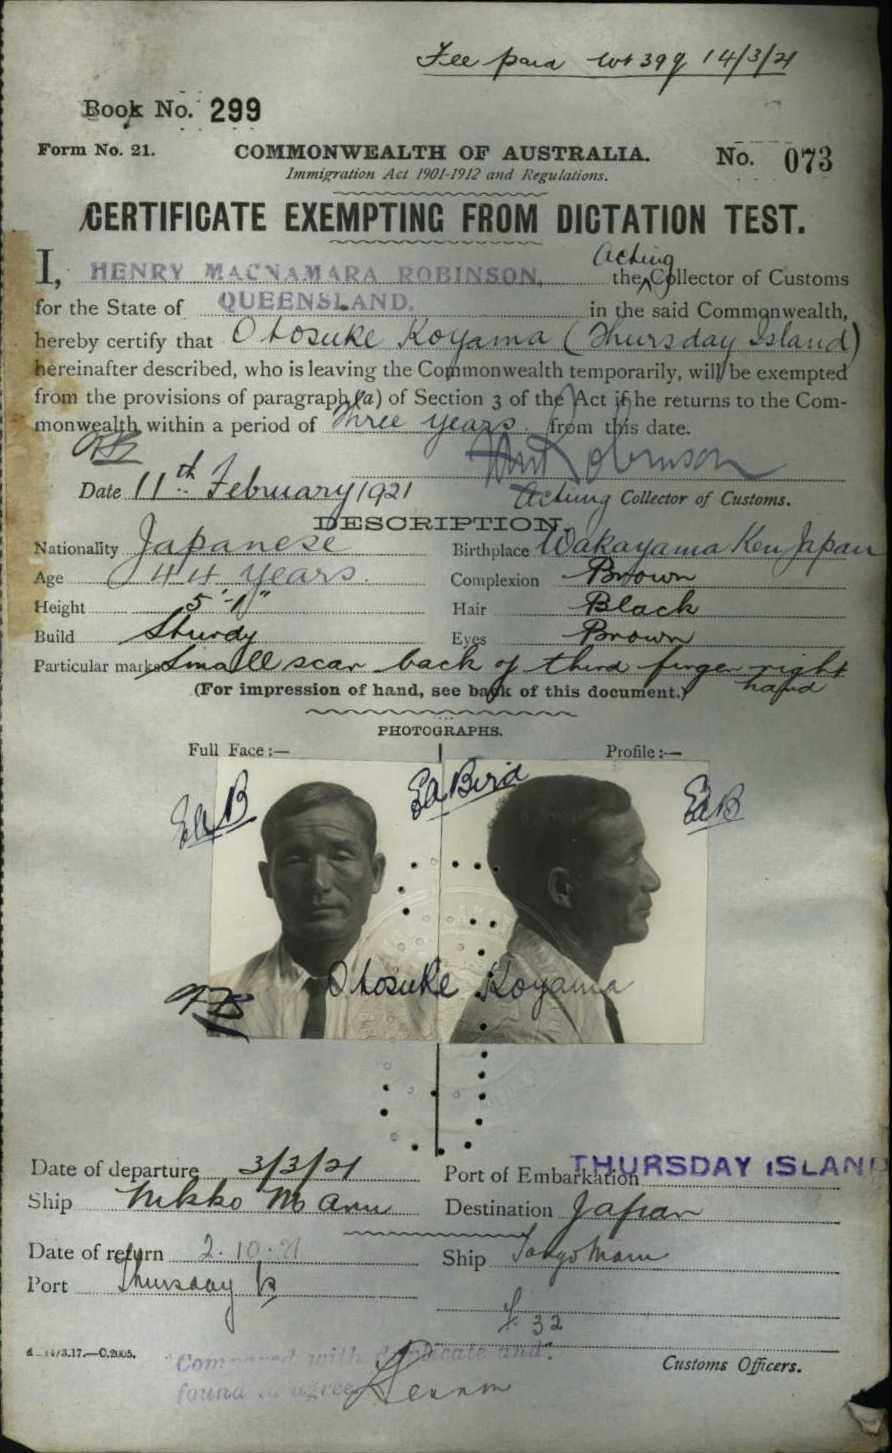 Fee paid 14/3/21
Book No. 299
Form No. 21. COMMONWEALTH OF AUSTRALIA. No. 073
Immigration Act 1901-1912 and Regulations.
CERTIFICATE EXEMPTING FROM DICTATION TEST.
Acting
I, HENRY MACNAMARA ROBINSON, the Collector of Customs
for the State of QUEENSLAND. in the said Commonwealth,
hereby certify that Otosuke Koyama (Thursday Island)
hereinafter described, who is leaving the Commonwealth temporarily, will be exempted
from the provisions of paragraph (a) of Section 3 of the Act if he returns to the Com-
monwealth within a period of Three years from this date.
Robinson
Date 11th February 1921 Acting Collector of Customs.
DESCRIPTION.
Nationality Japanese Birthplace Wakayama Ken Japan
Age 44 years. Complexion Brown
Height 5'-1" Hair Black
Build Sturdy Eyes Brown
Particular marks Small scar back of third finger right
hand
(For impression of hand, see back of this document.)
PHOTOGRAPHS.
Full Face :— Profile :—
EaB Ea Bird EaB
Otosuke Koyama
Date of departure 3/3/21 Port of Embarkation THURSDAY ISLAND
Ship Nikko Maru Destination Japan
Date of return 2.10.21 Ship Tango Maru
Port Thursday Is
32
Customs Officers.
"Compared with duplicate and
found to agree"